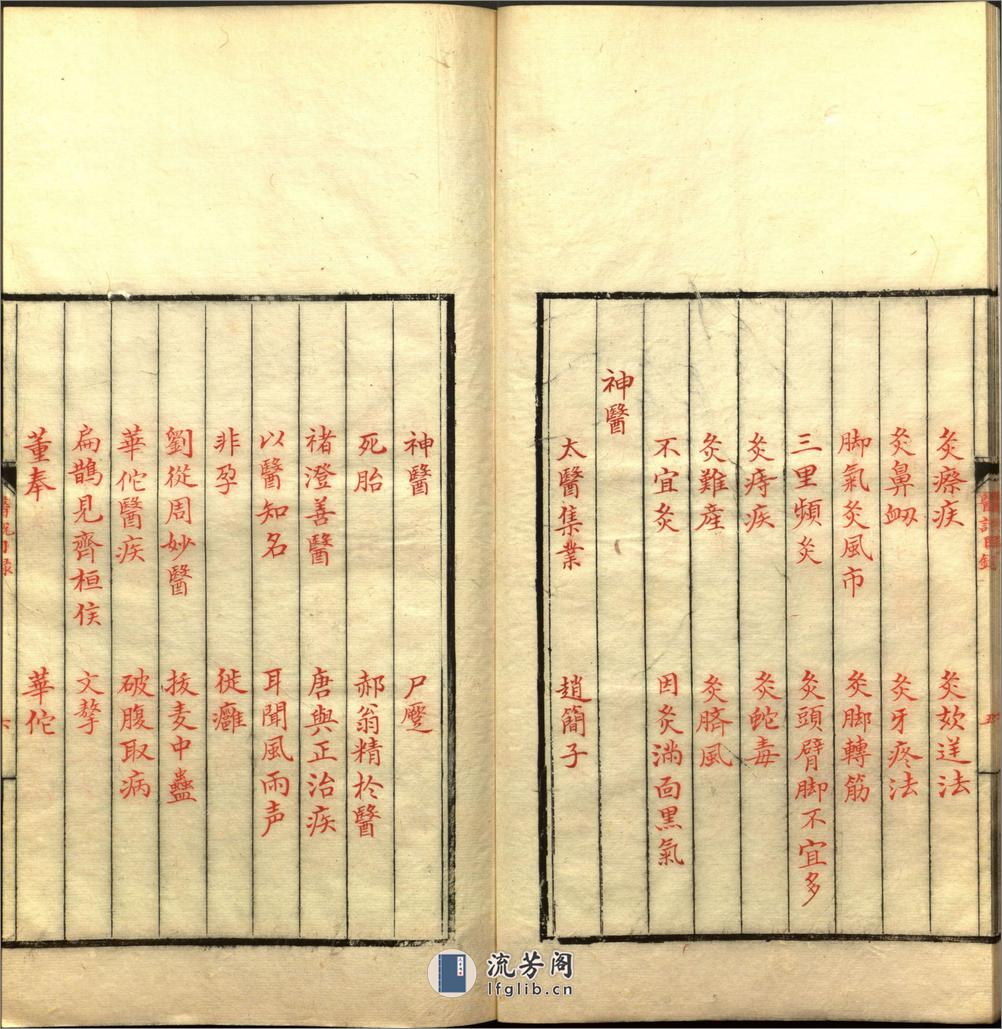 灸瘵疾　灸欬逆法
灸鼻衂　灸牙疼法
脚氣灸風市　灸脚轉筋
三里頻灸　灸頭臂脚不宜多
灸痔疾　灸蛇毒
灸難産　灸臍風
不宜灸　因灸滿面黑氣
神醫
太醫集業　趙簡子
神醫　尸蹷
死胎　郝翁精於醫
褚澄善醫　唐與正治疾
以醫知名　耳聞風雨声
非孕　徙癰
劉從周妙醫　拔麦中蠱
華佗醫疾　破腹取病
扁鵲見齊桓侯　文摯
董奉　華佗
醫說目錄
流芳阁
lfglib.cn